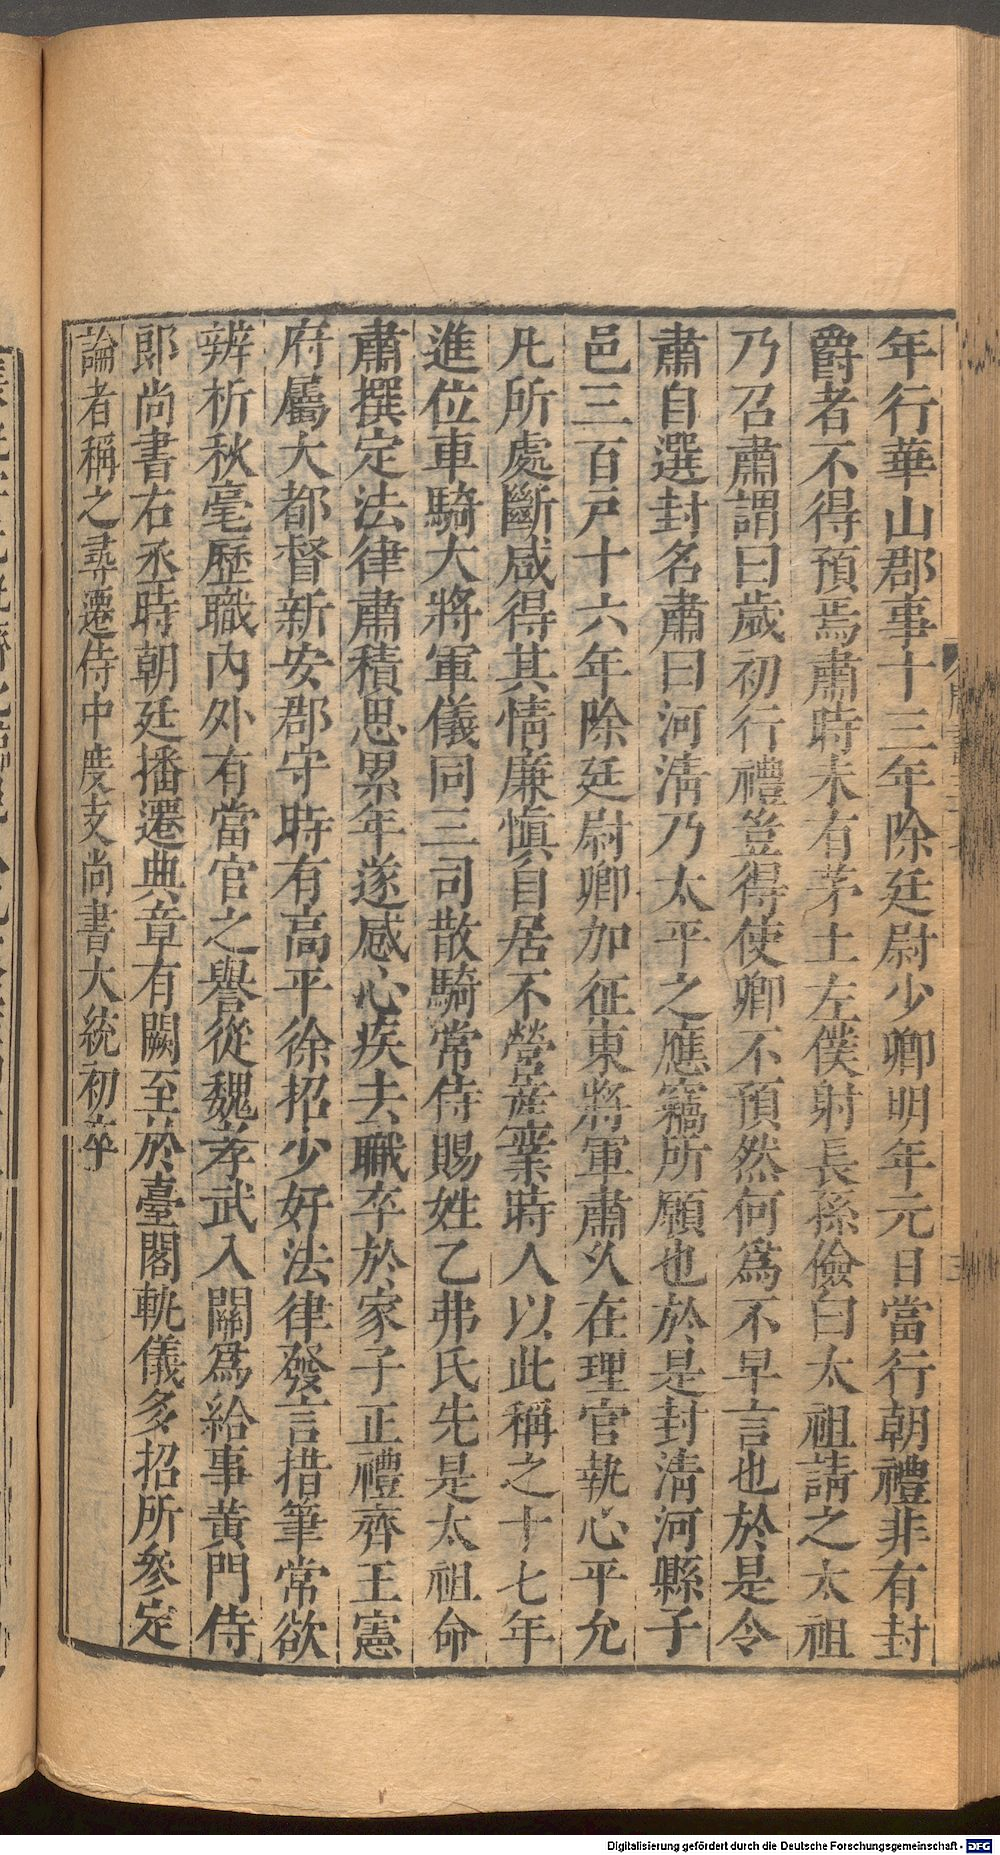 年行華山郡事十三年除廷尉少卿明年元日當行朝禮非有封
爵者不得預焉肅時未有茅土左僕射長孫儉白太祖請之太祖
乃召肅謂曰歲初行禮豈得使卿不預然何爲不早言也於是令
肅自選封名肅曰河淸乃太平之應竊所願也於是封淸河縣子
邑三百戸十六年除廷尉卿加征東將軍肅久在理官執心平允
凡所處斷咸得其情廉愼自居不營產業時人以此稱之十七年
進位車騎大將軍儀同三司散騎常侍賜姓乙弗氏先是太祖命
肅撰定法律肅積思累年遂感心疾去職卒於家子正禮齊王憲
府屬大都督新安郡守時有高平徐招少好法律發言措筆常欲
辨析秋毫歷職內外有當官之譽從魏孝武入關爲給事黃門侍
郎尚書右丞時朝廷播遷典章有闕至於臺閣軌儀多招所參定
論者稱之尋遷侍中度支尚書大統初卒
Digitalisierung gefördert durch die Deutsche Forschungsgemeinschaft - DFG